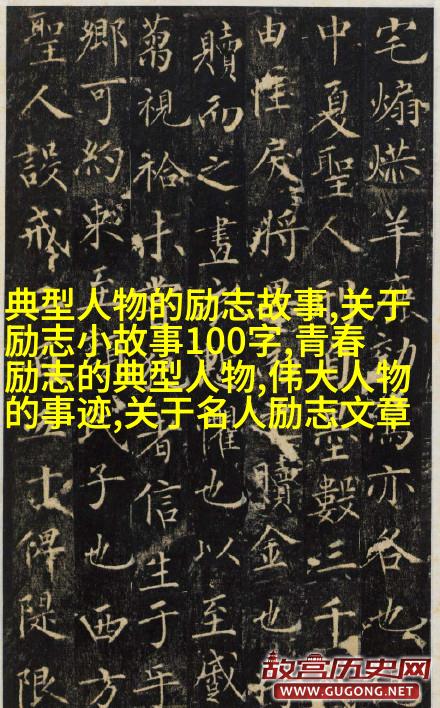 宅煽羊亦各也
中夏聖人數三千
由性戾將贖金也
贖而之也以至戚
視者信生于年
鄉可約束子也西方
聖人設戒士俾隄限
典型人物的励志故事,关于
励志小故事100字,青春
励志的典型人物,伟大人物
的事迹,关于名人励志文章
故宫历史网
WWW.GUGONG.NET